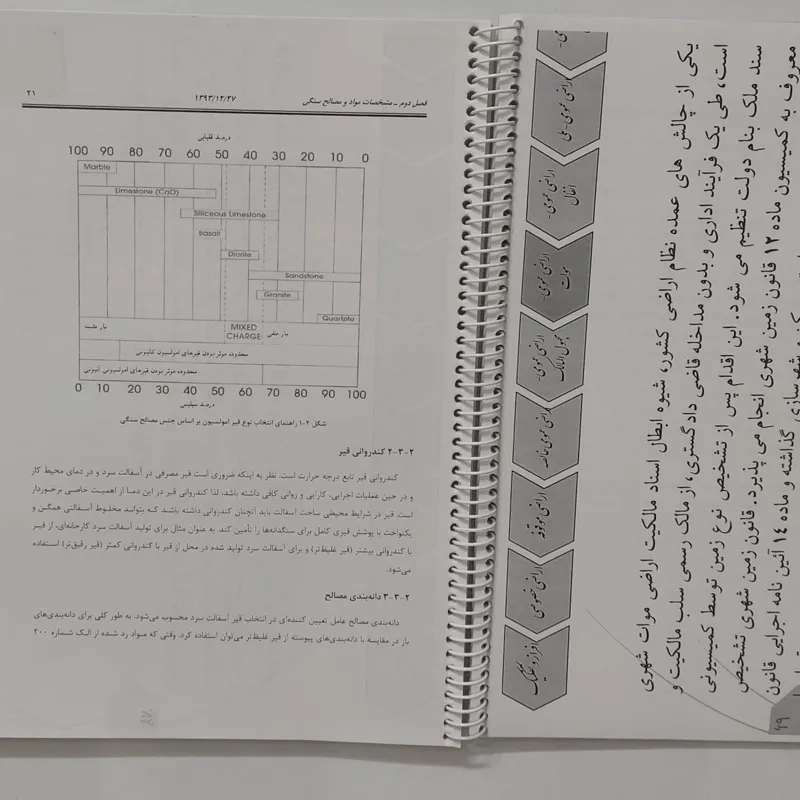 فصل دوم ـ مشخصات مواد و مصالح سنگی
۱۳۹۳/۱۲/۲۷
۲۱
درصد قلیایی
100 90 80 70 60 50 40 30 20 10 0
Marble
Limestone (CaO)
Siliceous Limestone
Basalt
Diorite
Sandstone
Granite
Quartzite
بار مثبت
MIXED CHARGE
بار منفی
محدوده موثر بودن قیرهای امولسیون کاتیونی
محدوده موثر بودن قیرهای امولسیونی آنیونی
0 10 20 30 40 50 60 70 80 90 100
درصد سیلیس
شکل ۲-۱ راهنمای انتخاب نوع قیر امولسیون بر اساس جنس مصالح سنگی
۲-۳-۲ کندروانی قیر
کندروانی قیر تابع درجه حرارت است. نظر به اینکه ضروری است قیر مصرفی در آسفالت سرد و در دمای محیط کار
و در حین عملیات اجرایی، کارایی و روانی کافی داشته باشد، لذا کندروانی قیر در این دما از اهمیت خاصی برخوردار
است. قیر در شرایط محیطی ساخت آسفالت باید آنچنان کندروانی داشته باشد که بتواند مخلوط آسفالتی همگن و
یکنواخت با پوشش قیری کامل برای سنگدانه‌ها را تأمین کند. به عنوان مثال برای تولید آسفالت سرد کارخانه‌ای، از قیر
با کندروانی بیشتر (قیر غلیظ‌تر) و برای آسفالت سرد تولید شده در محل از قیر با کندروانی کمتر (قیر رقیق‌تر) استفاده
می‌شود.
۲-۳-۳ دانه‌بندی مصالح
دانه‌بندی مصالح عامل تعیین کننده‌ای در انتخاب قیر آسفالت سرد محسوب می‌شود. به طور کلی برای دانه‌بندی‌های
باز در مقایسه با دانه‌بندی‌های پیوسته از قیر غلیظ‌تر می‌توان استفاده کرد. وقتی که مواد رد شده از الک شماره ۲۰۰
اراضی عمومی - ملی
اراضی عمومی - انفال
اراضی عمومی - موات
اراضی عمومی - مجهول المالک
اراضی عمومی خالصه
اراضی موقوفه
اراضی خصوصی
افراز و تفکیک
یکی از چالش های عمده نظام اراضی کشور، شیوه ابطال اسناد مالکیت اراضی موات شهری
است، طی یک فرآیند اداری و بدون مداخله قاضی دادگستری، از مالک رسمی سلب مالکیت و
سند ملک بنام دولت تنظیم می شود. این اقدام پس از تشخیص نوع زمین توسط کمیسیونی
معروف به کمیسیون ماده ۱۲ قانون زمین شهری انجام می پذیرد. قانون زمین شهری تشخیص
گذاشته و ماده ۱۴ آئین نامه اجرایی قانون
۶۹